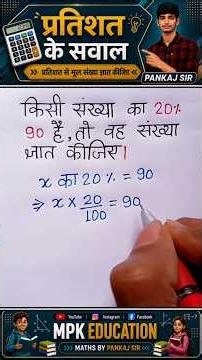 प्रतिशत
के सवाल
प्रतिशत से मूल संख्या ज्ञात कीजिए
PANKAJ SIR
किसी संख्या का 20%
90 है, तो वह संख्या
ज्ञात कीजिए।
x का 20% = 90
⇒ x × 20/100 = 90
YouTube | Instagram | Facebook
MPK EDUCATION
MATHS BY PANKAJ SIR